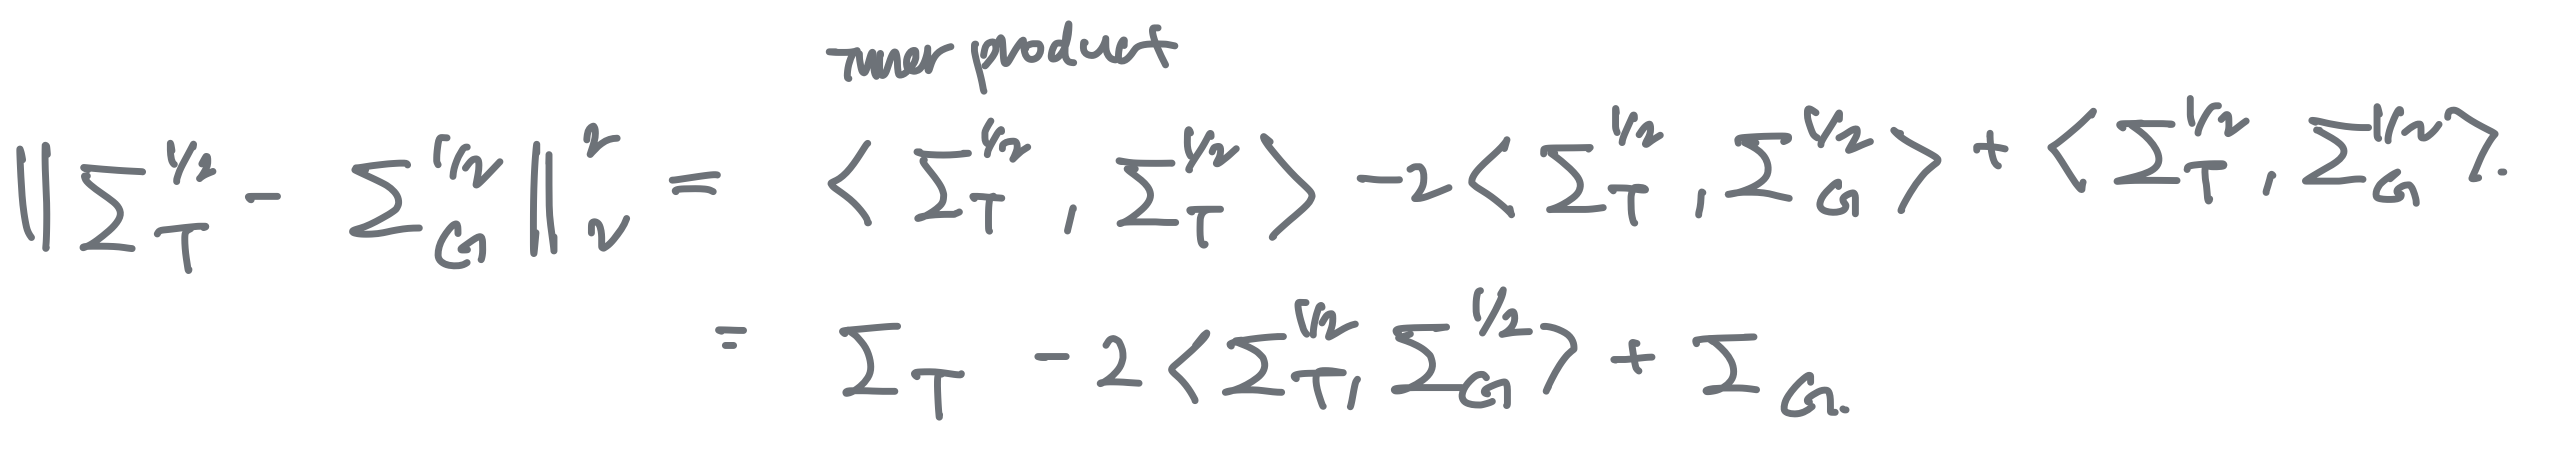 inner product
‖Σ_T^{1/2} - Σ_G^{1/2}‖_2^2 = ⟨Σ_T^{1/2}, Σ_T^{1/2}⟩ -2⟨Σ_T^{1/2}, Σ_G^{1/2}⟩ + ⟨Σ_T^{1/2}, Σ_G^{1/2}⟩.
= Σ_T - 2⟨Σ_T^{1/2}, Σ_G^{1/2}⟩ + Σ_G.